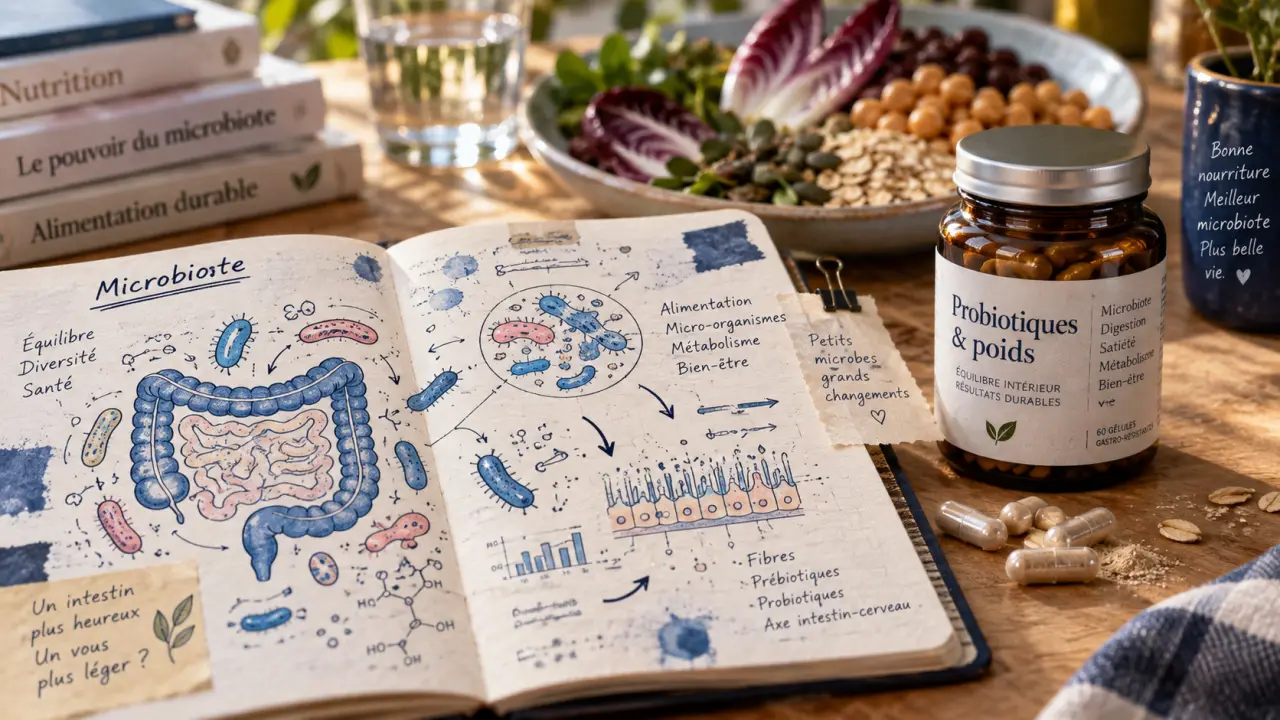 Nutrition
Le pouvoir du microbiote
Alimentation durable
Microbioste
Équilibre
Diversité
Santé
Un intestin
plus heureux
Un vous
plus léger ?
Alimentation
Micro-organismes
Métabolisme
Bien-être
Fibres
Prébiotiques
Probiotiques
Axe intestin-cerveau
HO
OH
OH
HO
OH
Petits
microbes
grands
changements
Probiotiques
& poids
ÉQUILIBRE INTÉRIEUR
RÉSULTATS DURABLES
Microbiote
Digestion
Satiété
Métabolisme
Bien-être
60 GÉLULES
Bonne
nourriture
Meilleur
microbiote
Plus belle
vie.